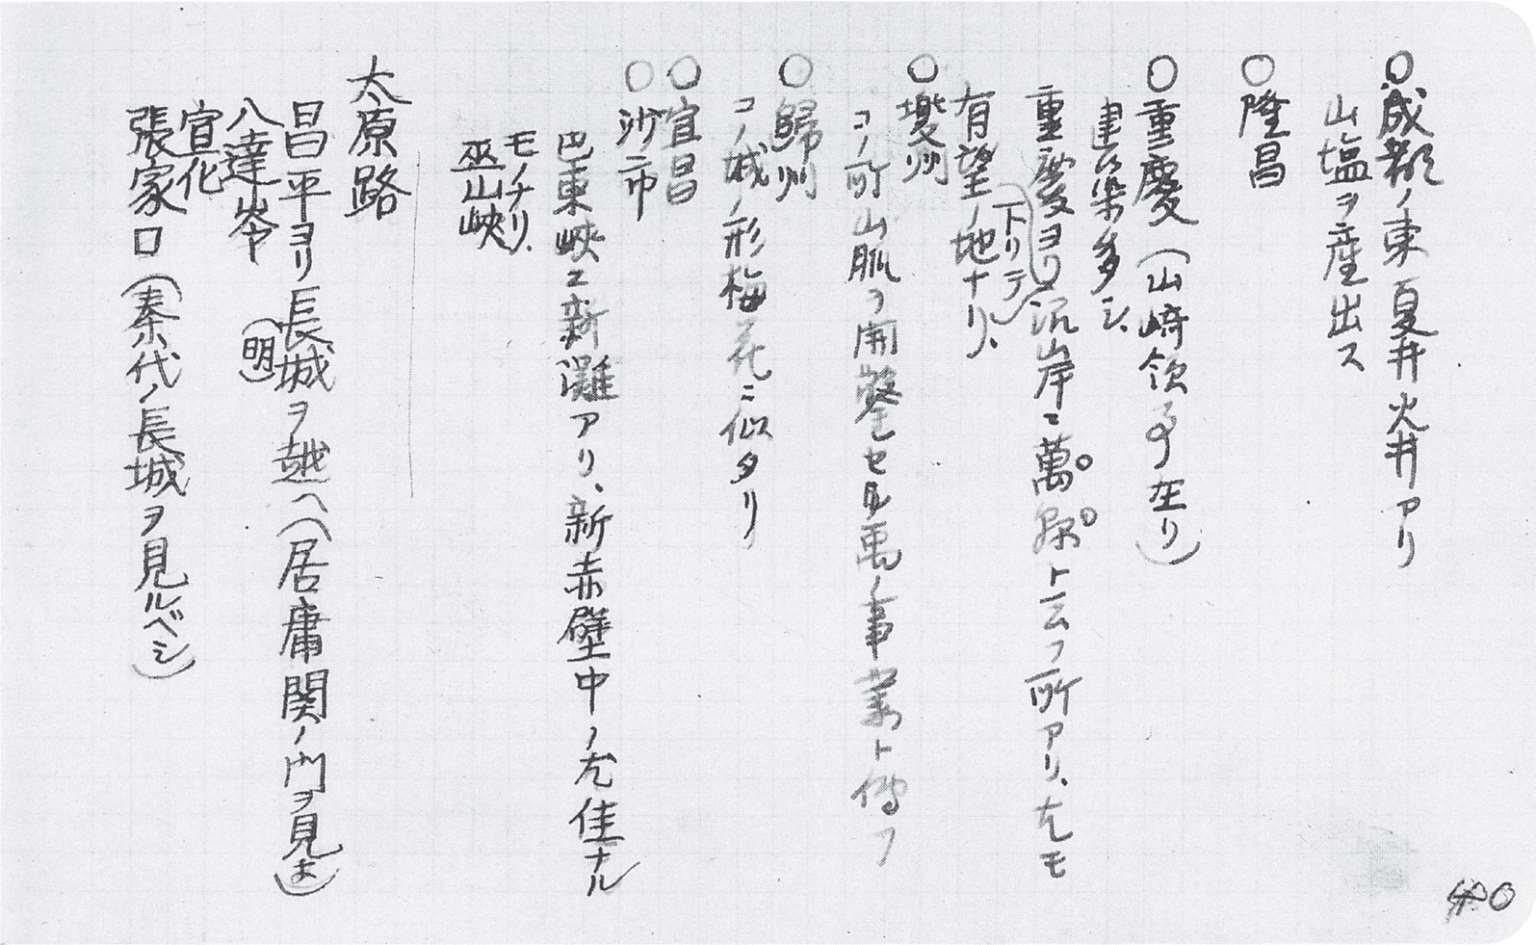 ○成都ノ東夏井火井アリ
山塩ヲ産出ス
○隆昌
○重慶（山崎領事在リ）
建築多シ、
重慶ヨリ（下リテ）沉岸ニ萬縣ト云フ所アリ、尤モ
有望ノ地ナリ、
○夔州
コノ所山肌ヲ開鑿セル禹ノ事業ト傳フ
○歸州
コノ城ノ形梅花ニ似タリ
○宜昌
○沙市
巴東峽ニ新灘アリ、新赤壁中ノ尤佳ナル
モノナリ、
巫山峽
太原路
昌平ヨリ長城ヲ越ヘ（居庸関ノ門ヲ見よ）
（明）
八達岺
宣化
張家口（秦代ノ長城ヲ見ルベシ）